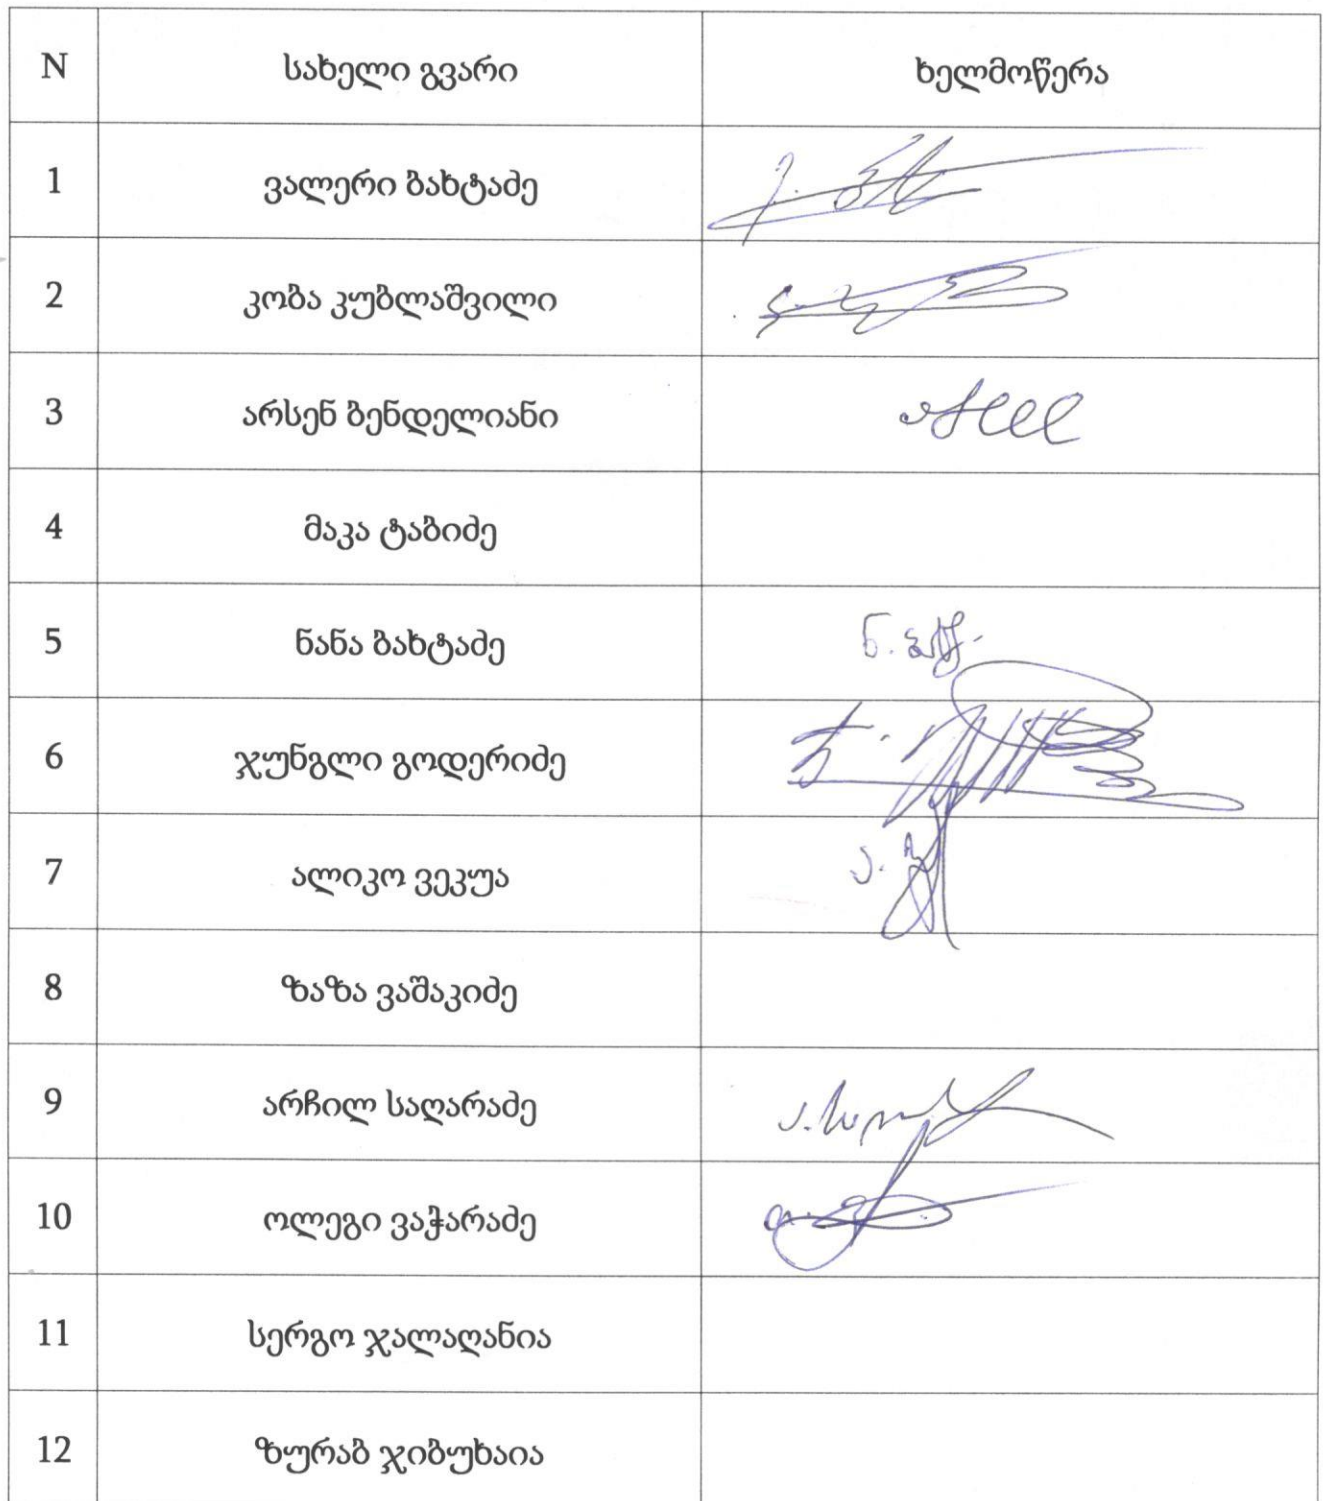 N სახელი გვარი ხელმოწერა
1 ვალერი ბახტაძე
2 კობა კუბლაშვილი
3 არსენ ბენდელიანი
4 მაკა ტაბიძე
5 ნანა ბახტაძე
6 ჯუნგლი გოდერიძე
7 ალიკო ვეკუა
8 ზაზა ვაშაკიძე
9 არჩილ საღარაძე
10 ოლეგი ვაჭარაძე
11 სერგო ჯალაღანია
12 ზურაბ ჯიბუხაია